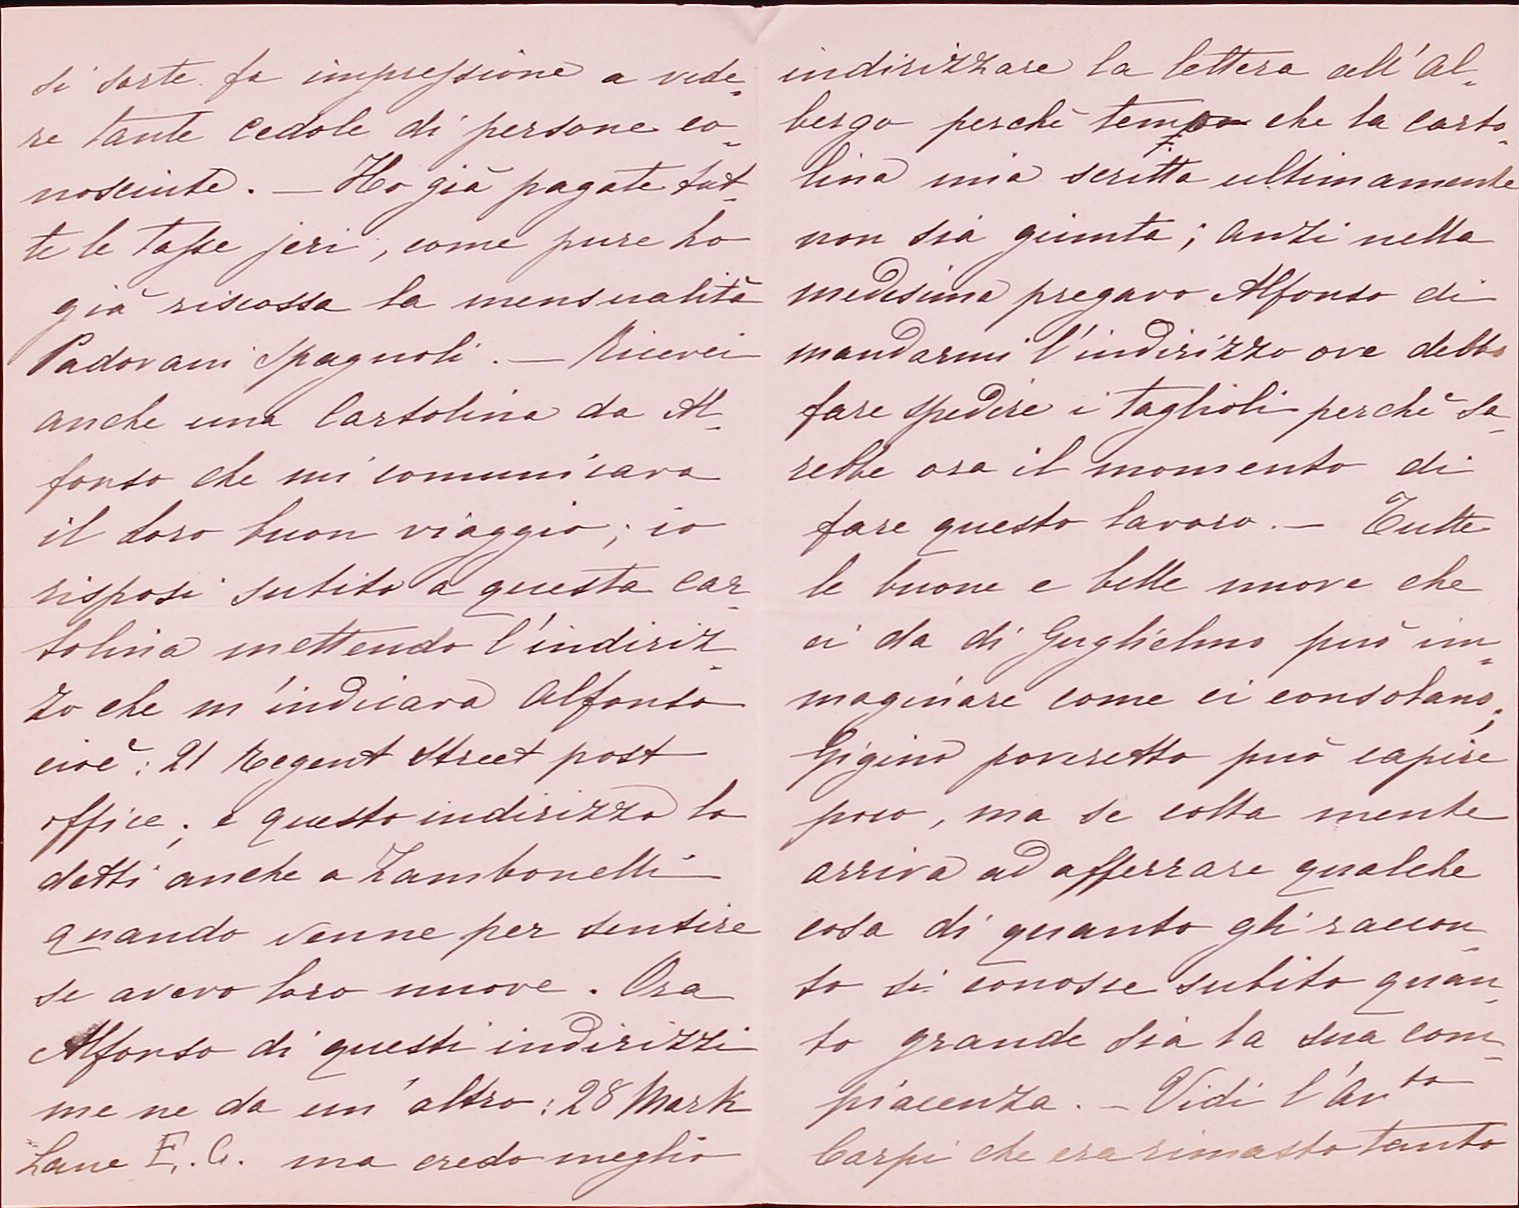 si sorte fa impressione a vede-
re tante cedole di persone co-
nosciute. — Ho già pagate tut-
te le tasse jeri, come pure ho
già riscossa la mensualità
Padovani Spagnoli. — Ricevei
anche una Cartolina da Al-
fonso che mi comunicava
il loro buon viaggio; io
risposi subito a questa car-
tolina mettendo l'indiriz-
zo che m'indicava Alfonso
cioè: 21 Regent Street post
office; e questo indirizzo lo
detti anche a Zambonelli
quando venne per sentire
se avevo loro nuove. Ora
Alfonso di questi indirizzi
me ne da un'altro: 28 Mark
Lane E. C. ma credo meglio
indirizzare la lettera all'Al-
bergo perchè temo che la carto-
lina mia scritta ultimamente
non sia giunta; anzi nella
medesima pregavo Alfonso di
mandarmi l'indirizzo ove debbo
fare spedire i taglioli perchè sa-
rebbe ora il momento di
fare questo lavoro. — Tutte
le buone e belle nuove che
ci da di Guglielmo può im-
maginare come ci consolano;
Gigino poveretto può capire
poco, ma se colla mente
arriva ad afferrare qualche
cosa di quanto gli raccon-
to si conosce subito quan-
to grande sia la sua com-
piacenza. — Vidi l'Avto
Carpi che era rimasto tanto